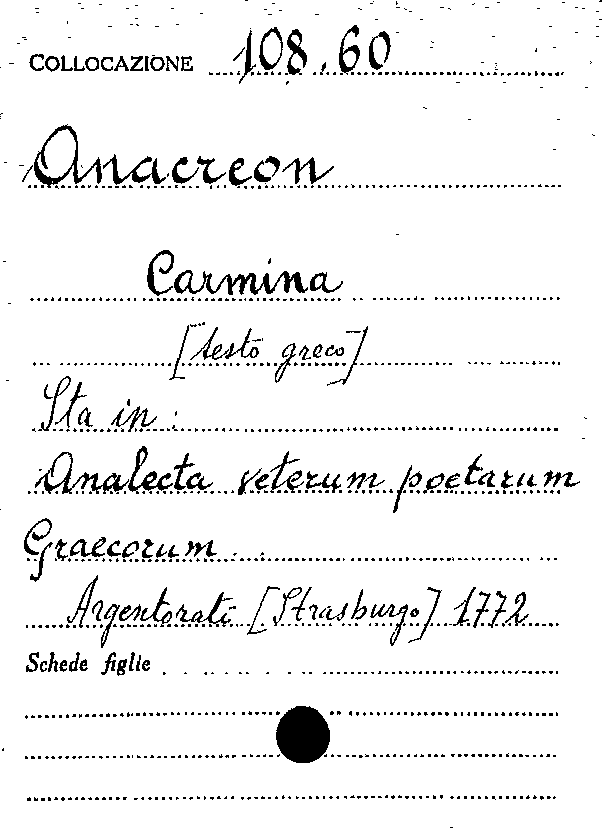 COLLOCAZIONE 108.60
Anacreon
Carmina
[testo greco]
Sta in:
Analecta veterum poetarum
Graecorum
Argentorati [Strasburgo] 1772
Schede figlie